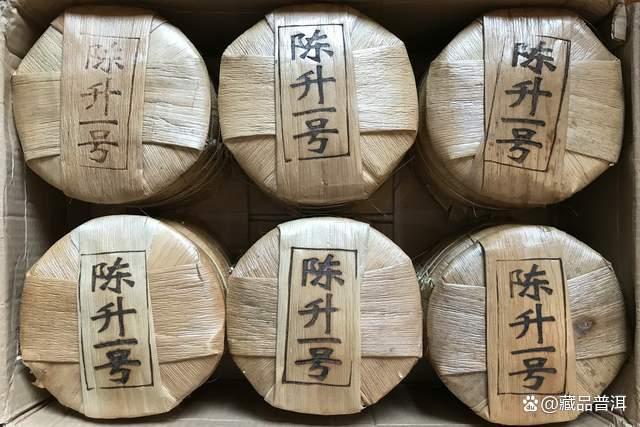 陈升一号
陈升一号
陈升一号
陈升一号
陈升一号
陈升一号
@藏品普洱